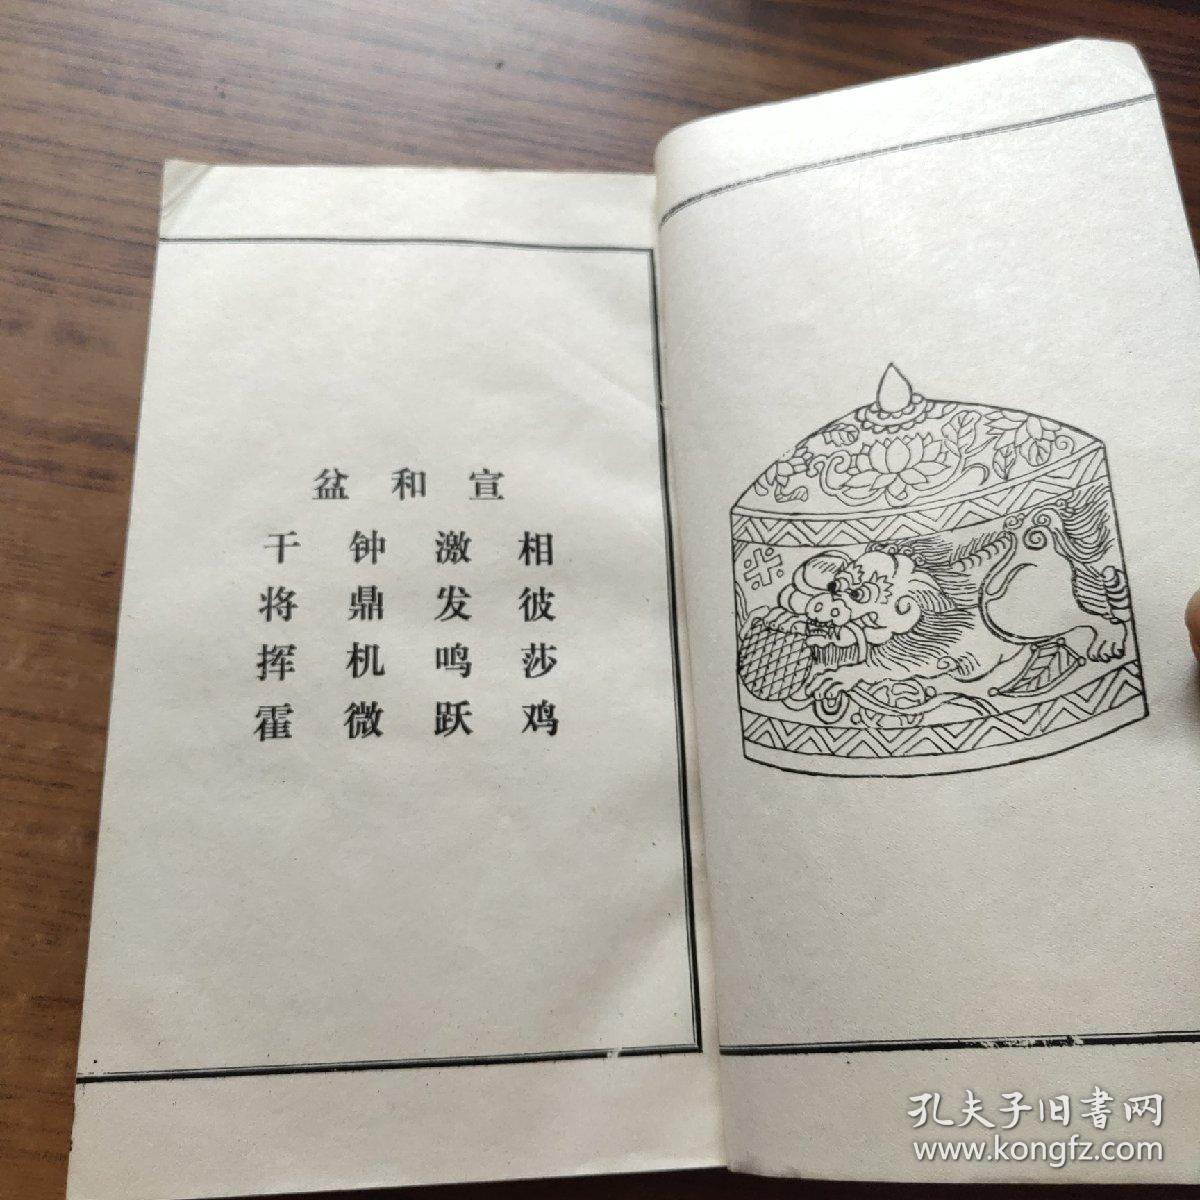 宣和盆
相彼莎鸡
激发鸣跃
钟鼎机微
干将挥霍
孔夫子旧書网
www.kongfz.com